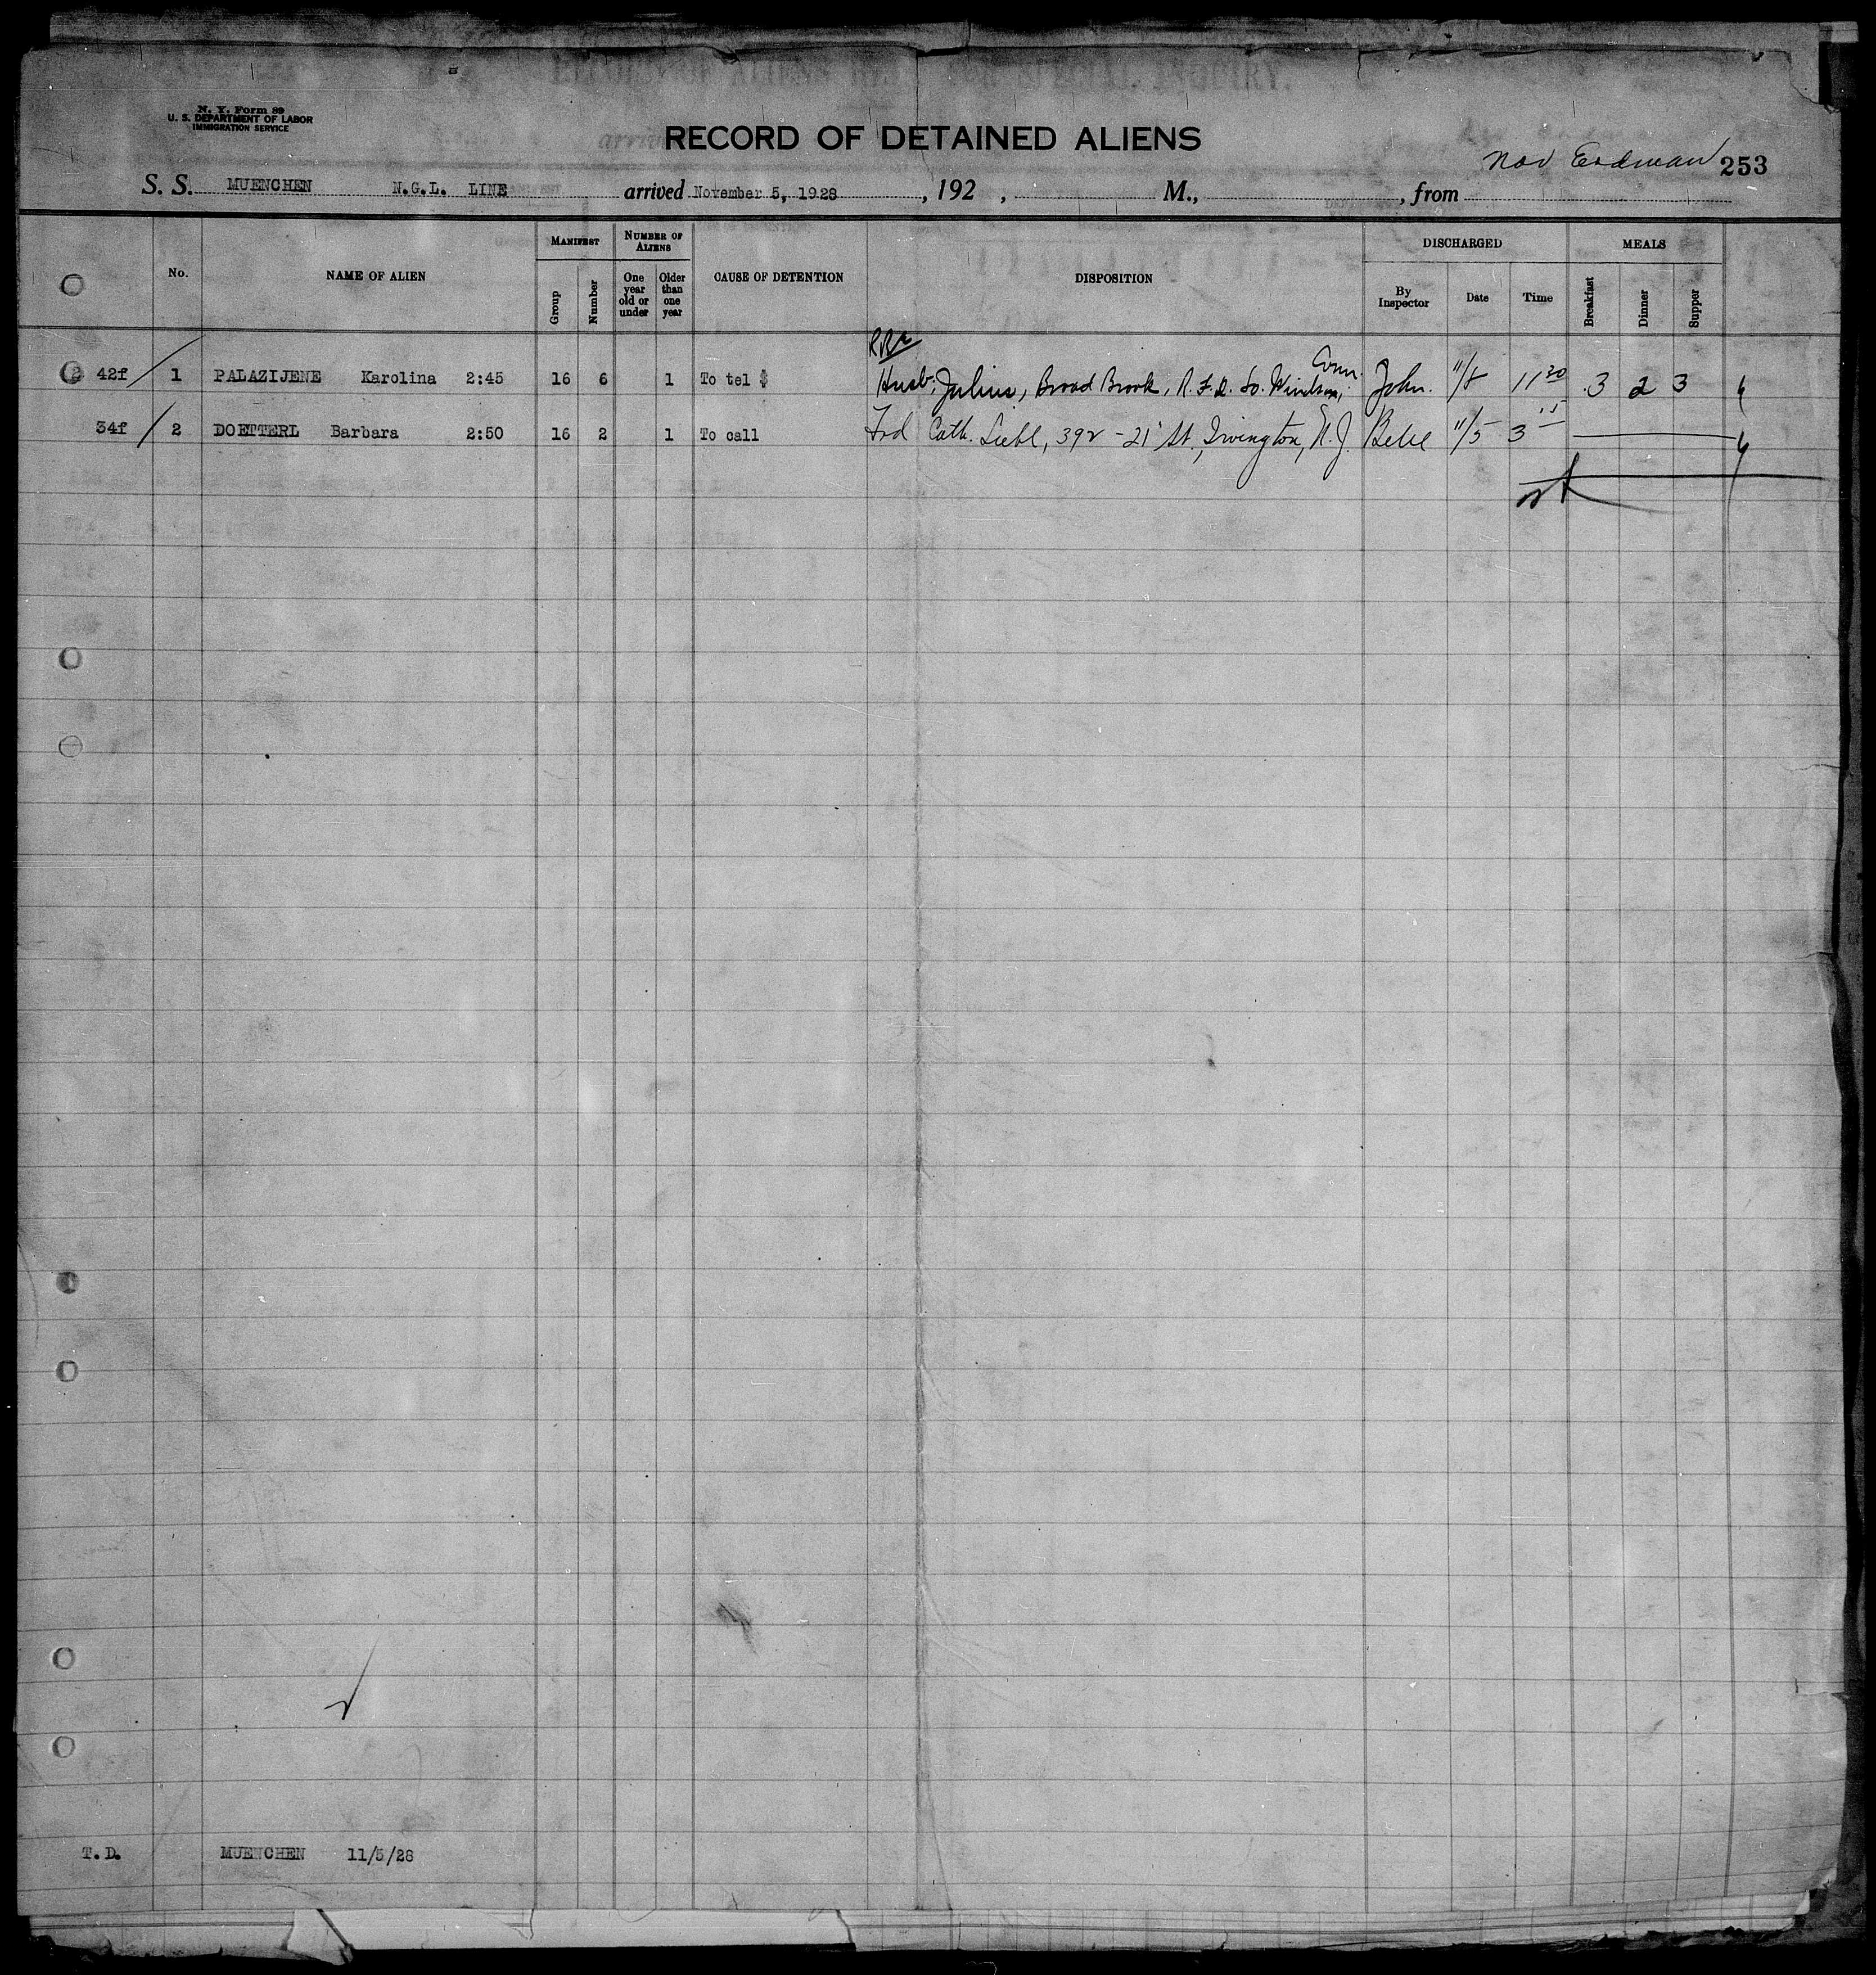 N. Y. Form 89
U. S. DEPARTMENT OF LABOR
IMMIGRATION SERVICE
RECORD OF DETAINED ALIENS
253
S. S. MUENCHEN N.G.L. LINE arrived November 5, 1928, 192 , M., , from
No. NAME OF ALIEN MANIFEST Group Number NUMBER OF ALIENS One year old or under Older than one year CAUSE OF DETENTION DISPOSITION DISCHARGED By Inspector Date Time MEALS Breakfast Dinner Supper
42f 1 PALAZIJENE Karolina 2:45 16 6 1 To tel $ Husb. Julius, Broad Brook, R.F.D. So. Windsor, Conn. John. 11/8 11 30 3 2 3
34f 2 DOETTERL Barbara 2:50 16 2 1 To call Frd Cath. Liebl, 392 - 21' St., Irvington, N.J. 11/5 3 15
T.D. MUENCHEN 11/5/28